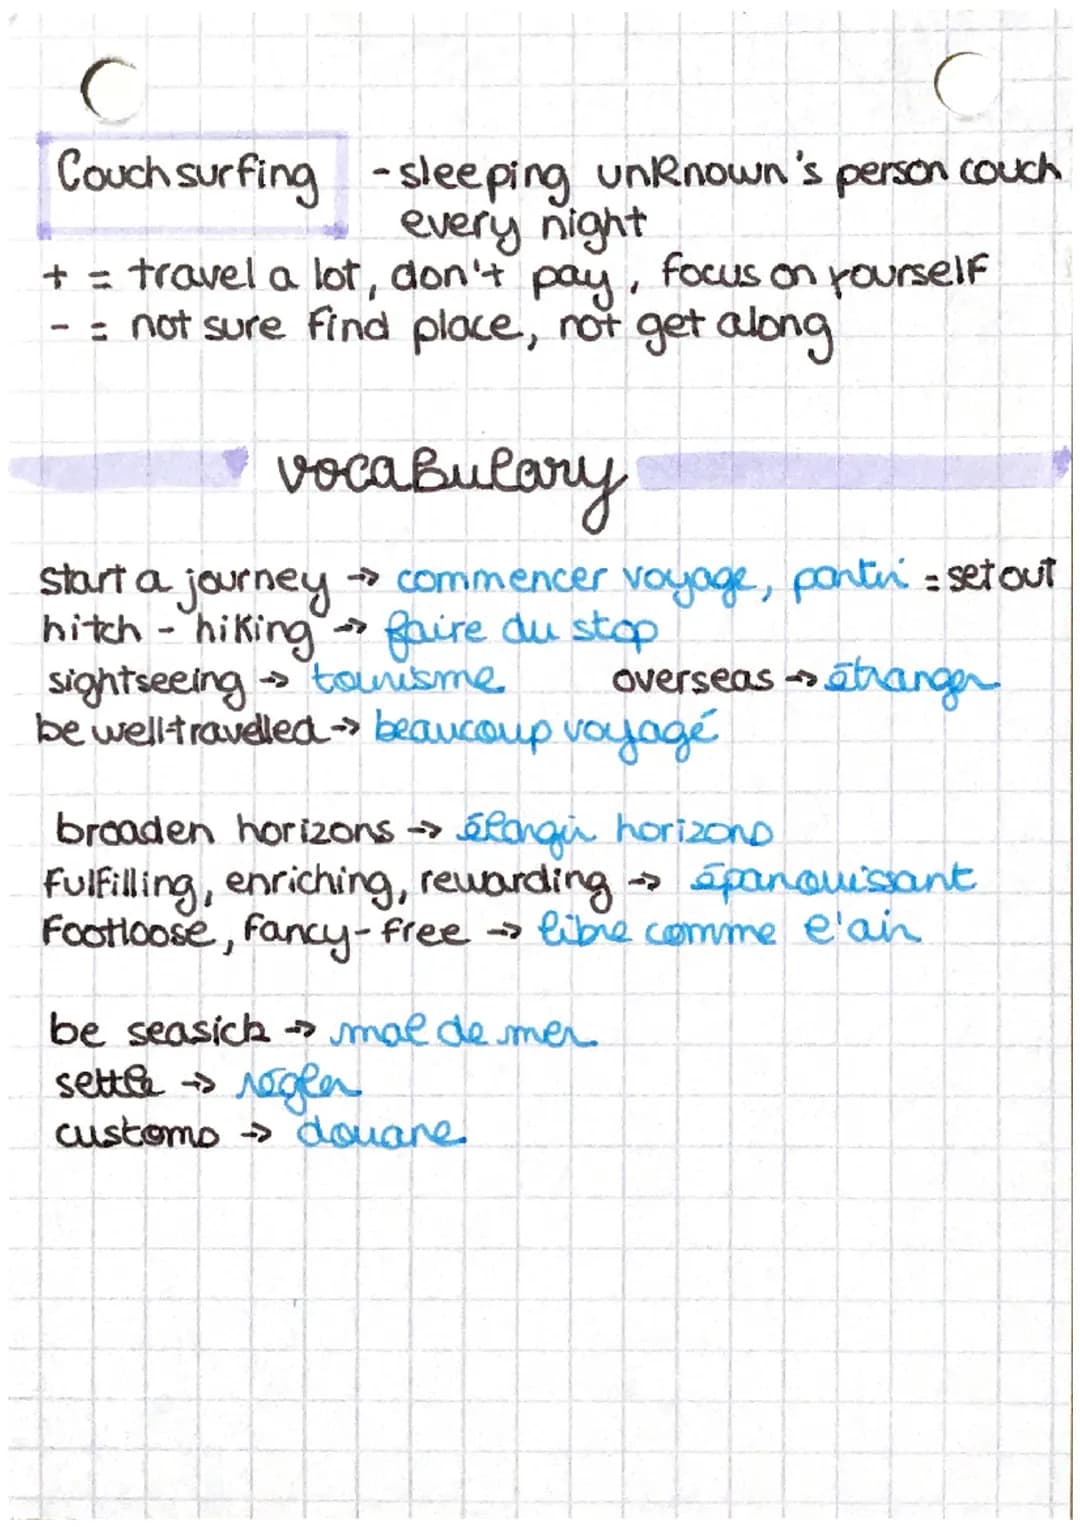 Couchsurfing - sleeping unknown's person couch
every night
+ = travel a lot, don't pay, focus on yourself
- = not sure find place, not get along
vocabulary
start a journey → commencer voyage, partir = set out
hitch-hiking → faire du stop
sightseeing → tourisme overseas → étranger
be well-travelled → beaucoup voyagé
broaden horizons → élargir horizons
fulfilling, enriching, rewarding → épanouissant
Footloose, fancy-free → libre comme l'air
be seasick → mal de mer
settle → régler
customs → douane